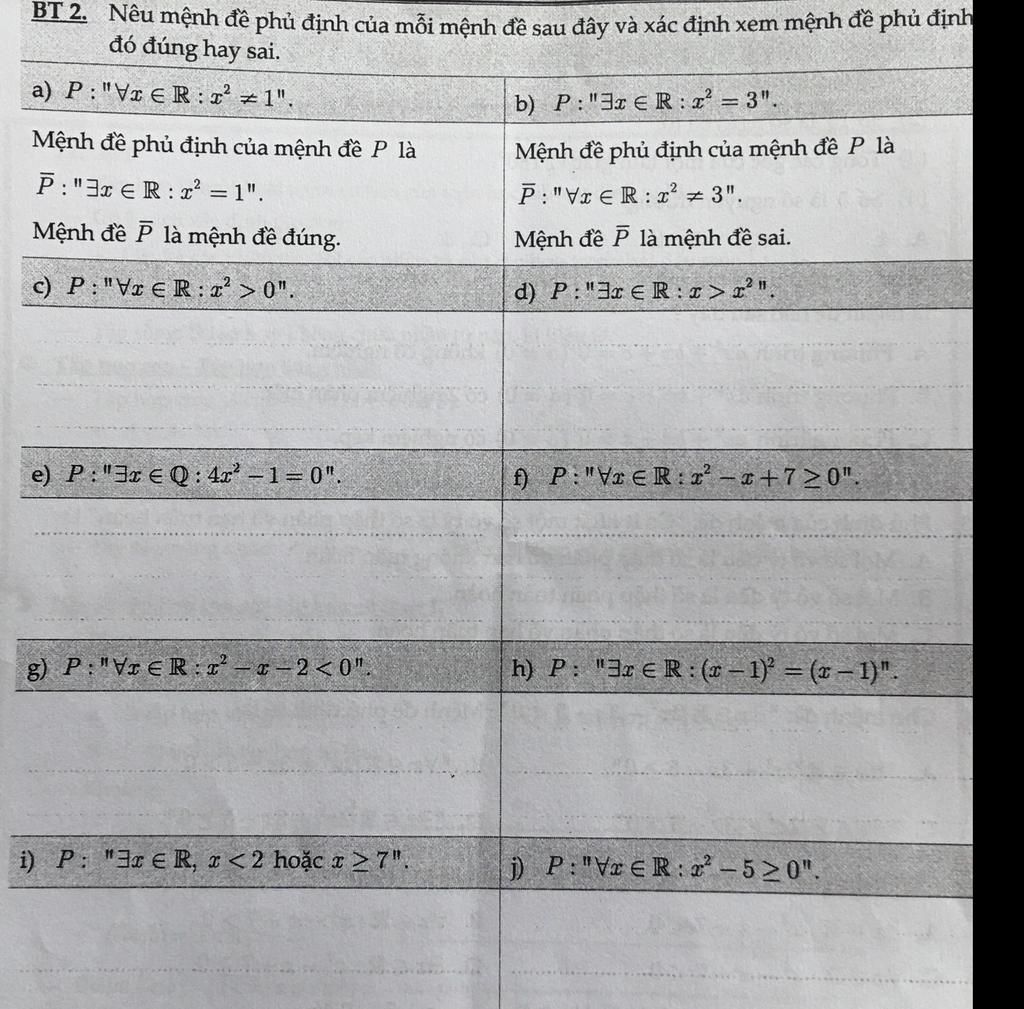 BT 2. Nêu mệnh đề phủ định của mỗi mệnh đề sau đây và xác định xem mệnh đề phủ định
đó đúng hay sai.
a) P : "∀x ∈ ℝ : x² ≠ 1".
b) P : "∃x ∈ ℝ : x² = 3".
Mệnh đề phủ định của mệnh đề P là
P̅ : "∃x ∈ ℝ : x² = 1".
Mệnh đề P̅ là mệnh đề đúng.
Mệnh đề phủ định của mệnh đề P là
P̅ : "∀x ∈ ℝ : x² ≠ 3".
Mệnh đề P̅ là mệnh đề sai.
c) P : "∀x ∈ ℝ : x² > 0".
d) P : "∃x ∈ ℝ : x > x²".
e) P : "∃x ∈ ℚ : 4x² − 1 = 0".
f) P : "∀x ∈ ℝ : x² − x + 7 ≥ 0".
g) P : "∀x ∈ ℝ : x² − x − 2 < 0".
h) P : "∃x ∈ ℝ : (x − 1)² = (x − 1)".
i) P : "∃x ∈ ℝ, x < 2 hoặc x ≥ 7".
j) P : "∀x ∈ ℝ : x² − 5 ≥ 0".